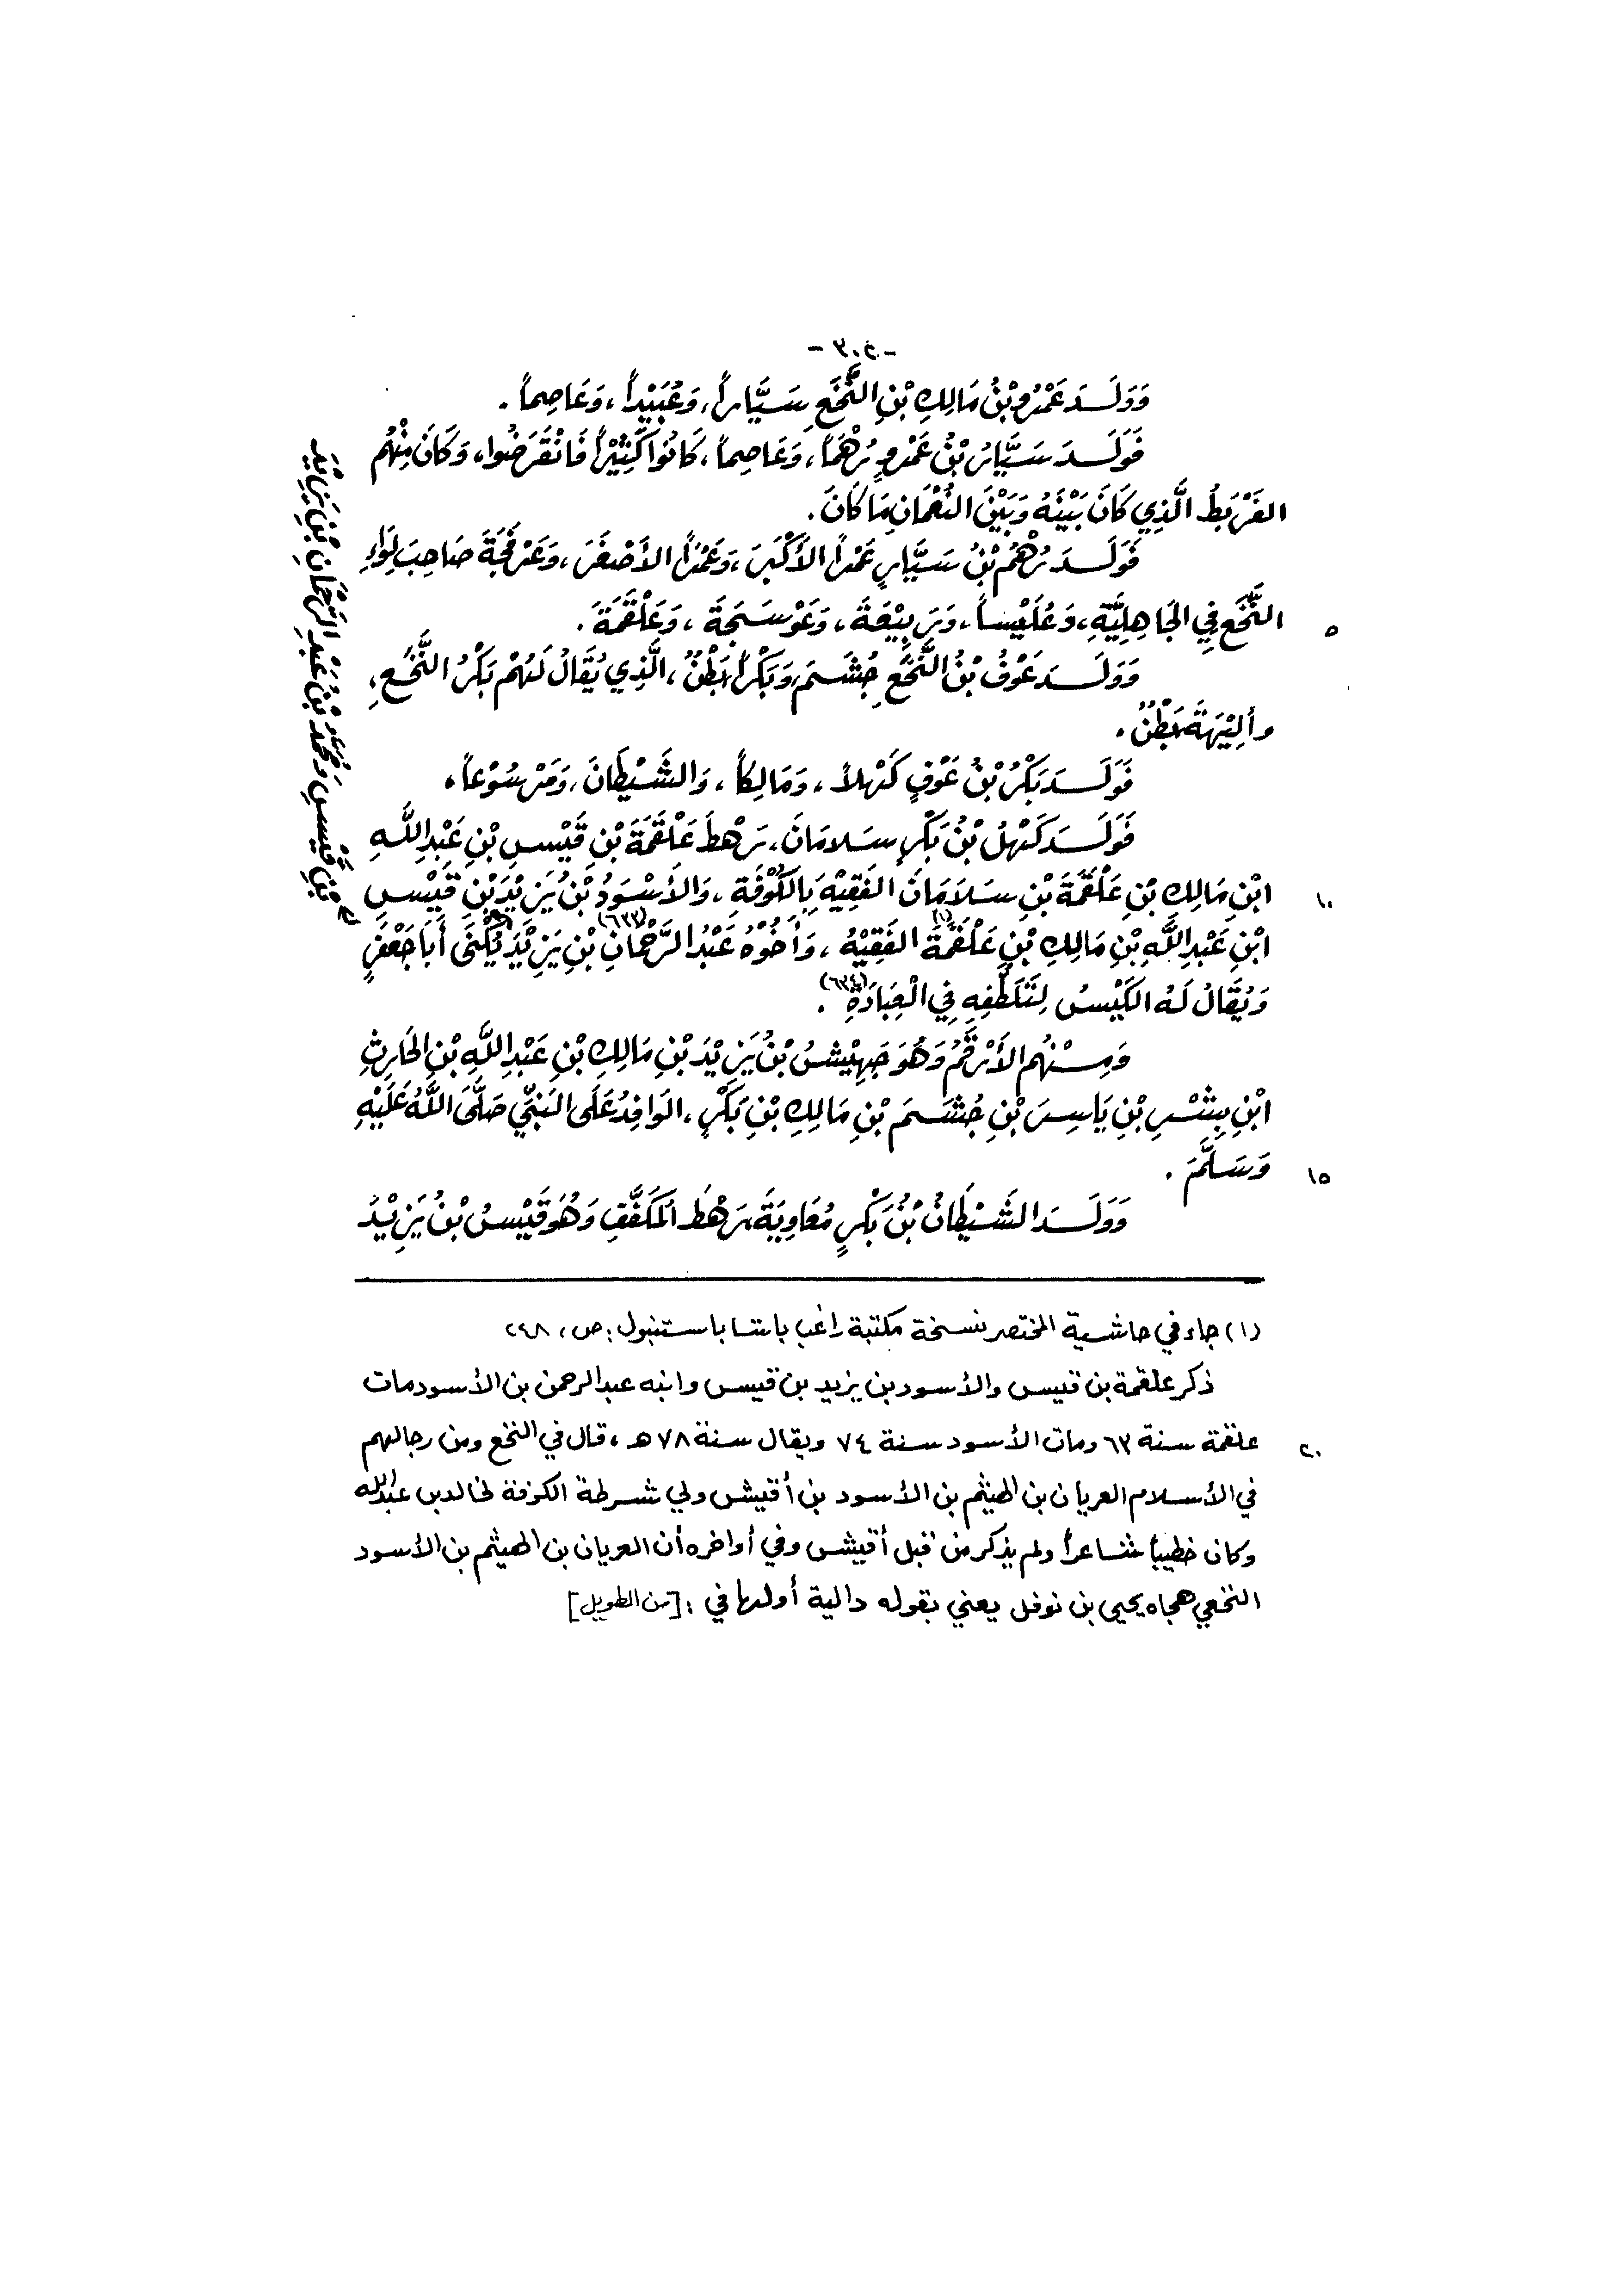 وَوَلَدَ عَمْرُو بْنُ مَالِكِ بْنِ النَّخَعِ سَيَّاراً، وَعُبَيْداً، وَعَاصِماً.
فَوَلَدَ سَيَّارُ بْنُ عَمْرٍو رُهْمَاً، وَعَاصِماً، كَانُوا كَثِيْراً فَانْقَرَضُوا، وَكَانَ مِنْهُم
الَّذِي كَانَ بَيْنَهُ وَبَيْنَ النُعْمَانِ مَا كَانَ.
فَوَلَدَ رُهْمُ بْنُ سَيَّارٍ عَمْراً الأَكْبَرَ، وَعَمْراً الأَصْغَرَ، وَعَرْفَجَةَ صَاحِبَ لِوَاءِ
النَّخَعِ فِي الجَاهِلِيَّةِ، وَعُلَيْساً، وَرَبِيْعَةَ، وَعَوْسَجَةَ، وَعَلْقَمَةَ.
٥
وَوَلَدَ عَوْفُ بْنُ النَّخَعِ جُشَمَ، وَبَكْراً بَطْنٌ، الَّذِي يُقَالُ لَهُمْ بَكْرُ النَّخَعِ،
وألِيْهَةَ بَطْنٌ.
فَوَلَدَ بَكْرُ بْنُ عَوْفٍ كَهْلاً، وَمَالِكاً، وَالشَّيْطَانَ، وَمَرْسُوْعاً.
فَوَلَدَ كَهْلُ بْنُ بَكْرٍ سَلامَانَ، رَهْطَ عَلْقَمَةَ بْنِ قَيْسِ بْنِ عَبْدِ اللَّهِ
ابْنِ مَالِكِ بْنِ عَلْقَمَةَ بْنِ سَلَامَانَ الفَقِيْهَ بِالكُوْفَةِ، وَالأَسْوَدُ بْنُ يَزِيْدَ بْنِ قَيْسِ
١٠
ابْنِ عَبْدِ اللَّهِ بْنِ مَالِكِ بْنِ عَلْقَمَةَ (١) الفَقِيْهُ، وَأَخُوْهُ عَبْدُ الرَّحْمَانِ (٦٣٣) بْنِ يَزِيْدَ يُكْنَى أَبَا جَعْفَرٍ
بْنِ قَيْسٍ وَمُحَمَّدُ بْنُ عَبْدِ الرَّحْمَانِ بْنِ يَزِيْدَ
وَيُقَالُ لَهُ الكَيِّسُ لِتَلَطُّفِهِ فِي الْعِبَادَةِ (٦٣٤).
وَمِنْهُم الأَرْقَمُ وَهُوَ جَهِيْشُ بْنُ يَزِيْدَ بْنِ مَالِكِ بْنِ عَبْدِ اللَّهِ بْنِ الحَارِثِ
ابْنِ بِشْرِ بْنِ يَاسِرَ بْنِ جُشَمَ بْنِ مَالِكِ بْنِ بَكْرٍ، الوَافِدُ عَلَى النَّبِيِّ صَلَّى اللَّهُ عَلَيْهِ
وَسَلَّمَ.
١٥
وَوَلَدَ الشَّيْطَانُ بْنُ بَكْرٍ مُعَاوِيَةَ رَهْطَ المُكَفَّفِ وَهُوَ قَيْسُ بْنُ يَزِيْدَ
(١) جاء في حاشية المختصر نسخة مكتبة راغب باشا باستنبول: ص، ٢٤٨
ذكر علقمة بن قيس والأسود بن يزيد بن قيس وابنه عبد الرحمن بن الأسود مات
علقمة سنة ٦٣ ومات الأسود سنة ٧٤ ويقال سنة ٧٨ هـ، قال في النخع ومن رجالهم
٢٠
في الأسلام العريان بن الهيثم بن الأسود بن أقيش ولي شرطة الكوفة لخالد بن عبد الله
وكان خطيباً شاعراً ولم يذكر من قبل أقيش وفي أواخره أن العريان بن الهيثم بن الأسود
النخعي هجاه يحيى بن نوفل يعني بقوله دالية أولها في: [من الطويل]